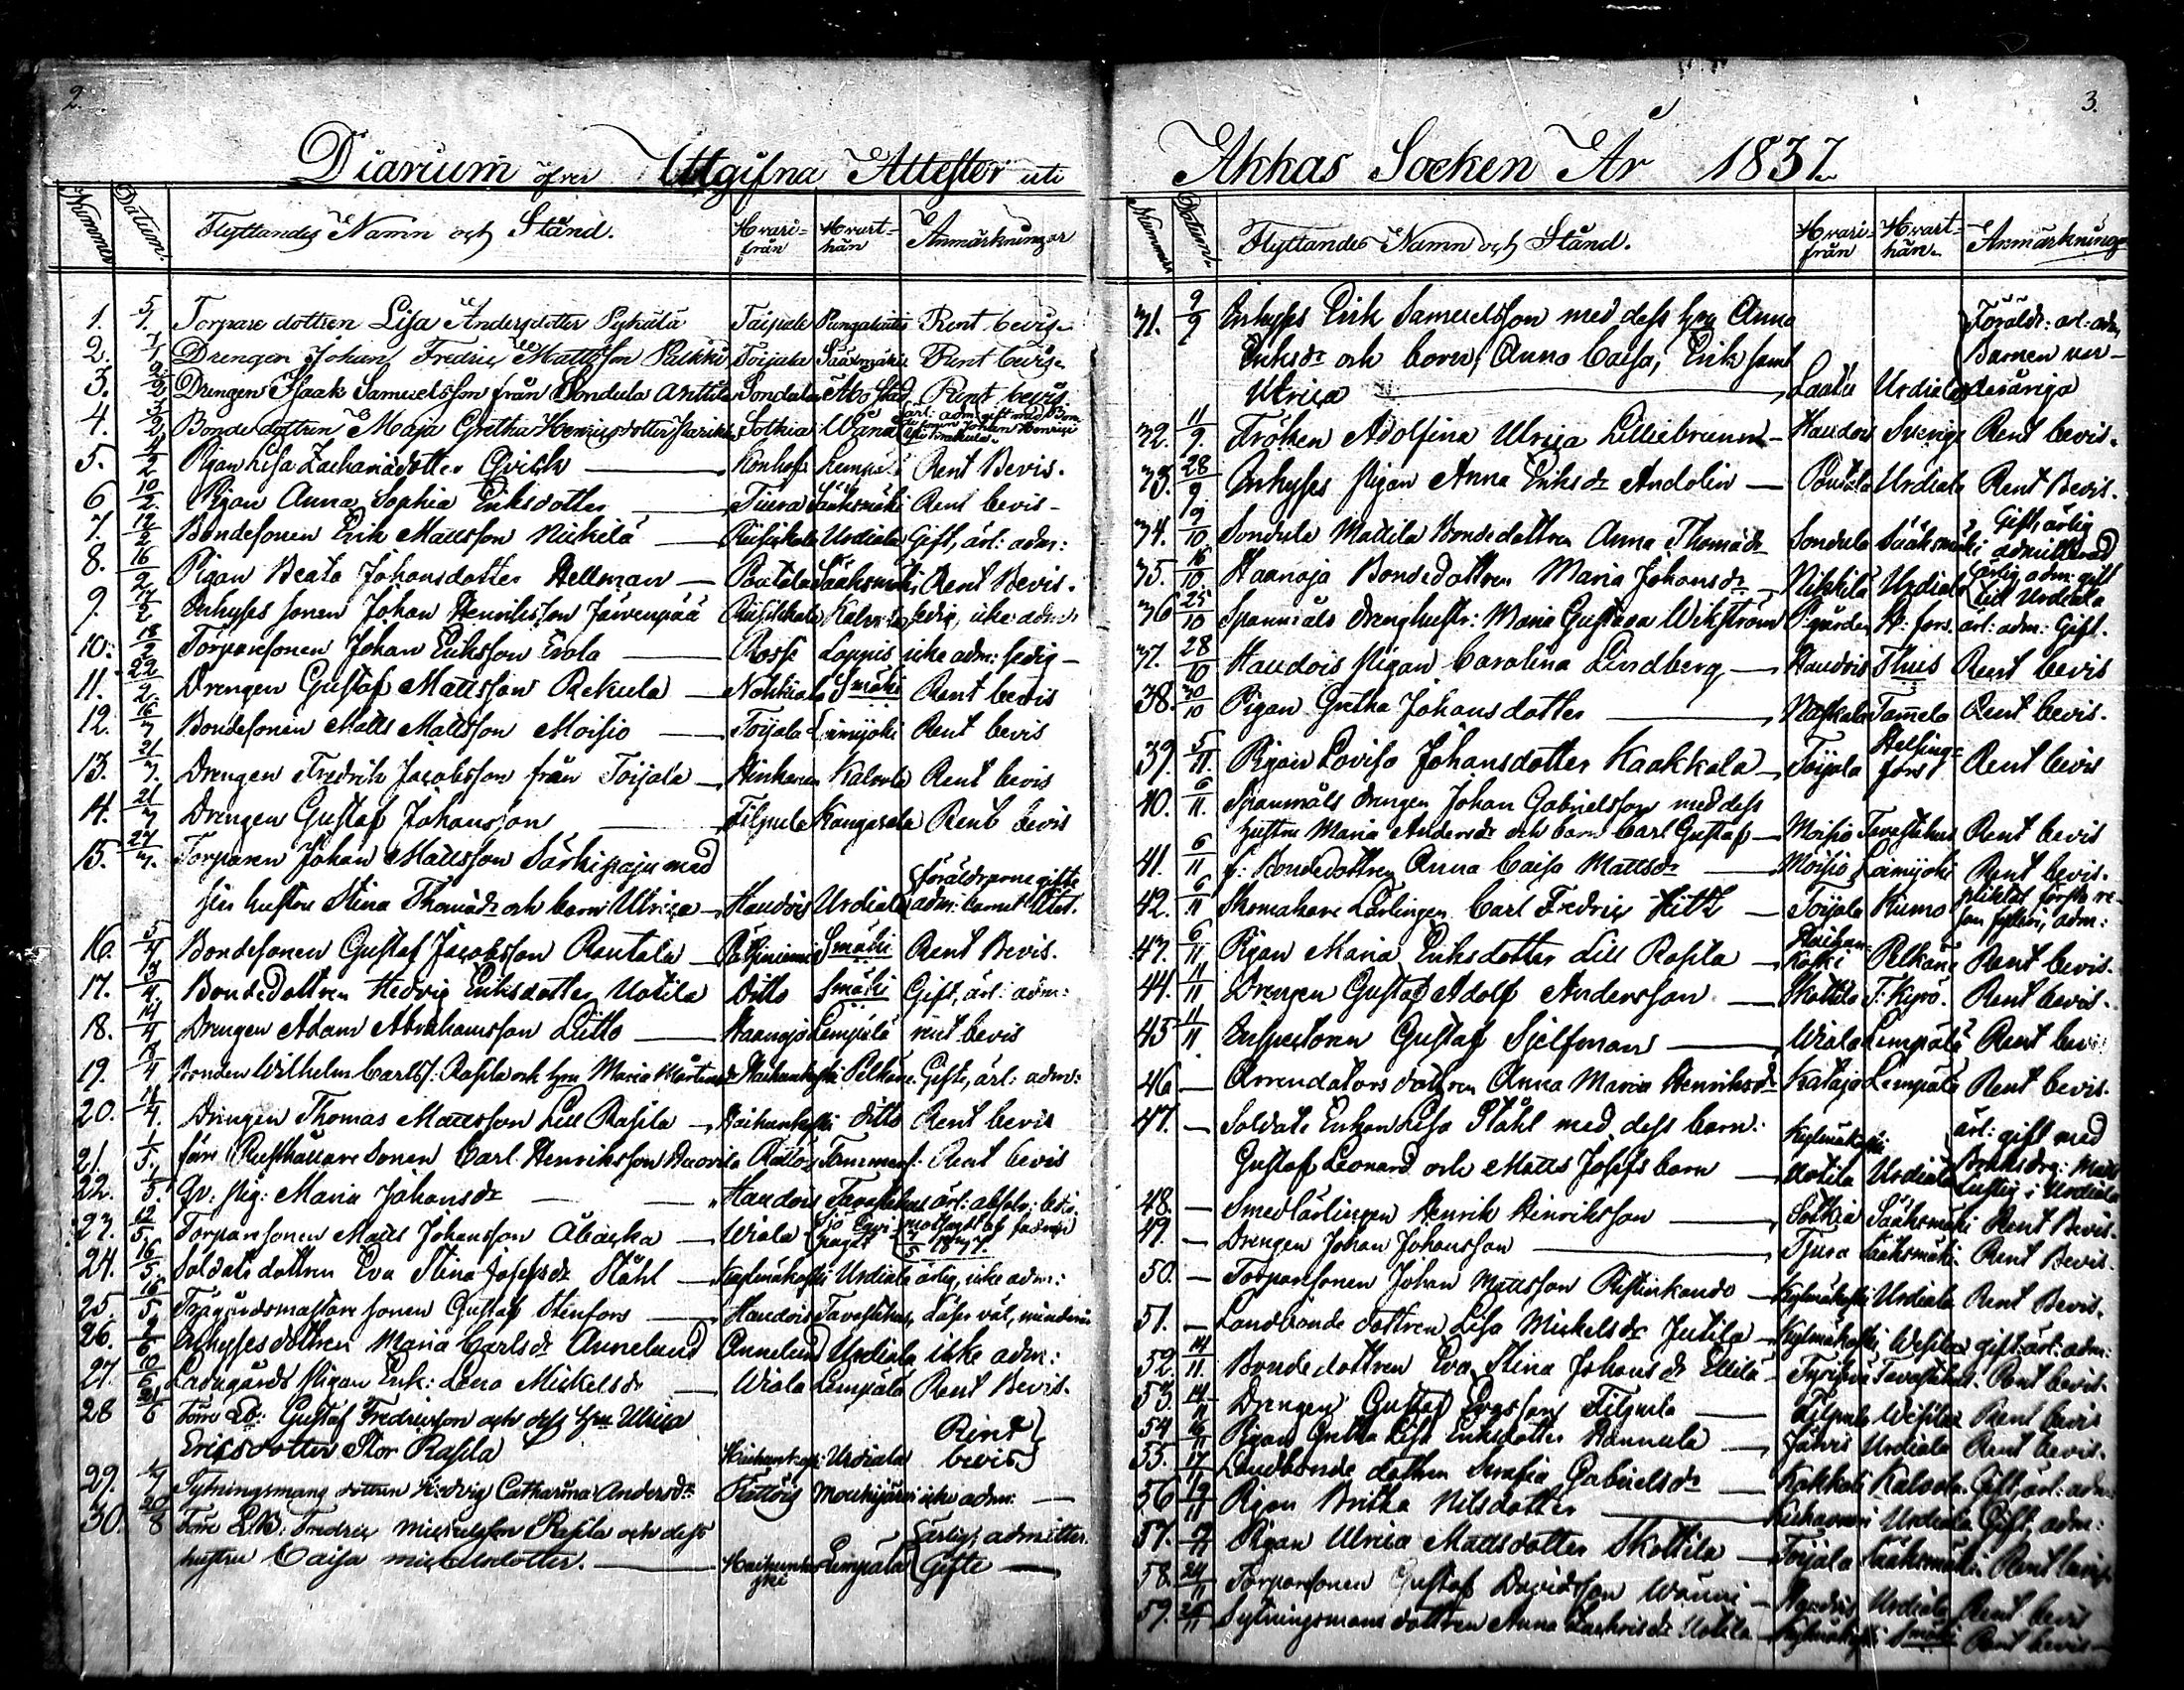 2.
Diarium öfver Utgifna Attester uti
Nummer Datum. Flyttandes Namn och Stånd. Hvari-från Hvart-hän Anmärkningar
1. 5/1. Torpare dottren Lisa Andersdotter Taipale Rent bevis.
2. Drengen Johan Fredric Mattsson Toijala Sääxmäki Rent bevis.
3. Drengen Isaak Samuelsson från Sondula Anttila Sondula Åbo Stad Rent bevis.
4. Bonde dottren Maja Gretha Henricsdotter Sotkia Wånå ärl: adm: gift med Bonde sonen Johan Henricss
5. Pigan Lisa Zachariædotter Qvick Konho Lempälä Rent Bevis.
6 10/2. Pigan Anna Sophia Eriksdotter Tiura Sääksmäki Rent bevis
7. 12/2 Bondesonen Erik Mattsson Nickilä Urdiala Gift, ärl: adm:
8. 16/2 Pigan Beata Johansdotter Hellman Pätälä Sääksmäki Rent Bevis.
9. 17/2 Inhyses sonen Johan Henriksson Järvenpää Kalvola ledig, icke adm:
10. 18/2 Torparesonen Johan Eriksson Erola Loppis icke adm: ledig
11. 22/2 Drengen Gustaf Mattsson Rekula Nahkiala Smäki Rent bevis
12. 16/3 Bondesonen Matts Mattsson Moisio Toijala Loimijoki Rent bevis
13. 21/3. Drengen Fredrik Jacobsson från Toijala Kalvola Rent bevis
14. 21/3 Drengen Gustaf Johansson Filpula Kangasala Rent bevis
15. 27/3. Torparen Johan Mattsson Särkipaju med
sin hustru Stina Thomædr och barn Ulrica Haudois Urdiala föräldrarne gifte adm: barnet litet.
16. 5/4 Bondesonen Gustaf Jacobsson Rantala Smäki Rent Bevis.
17. 13/4. Bondedottren Hedvig Eriksdotter Uotila Ditto Smäki Gift, ärl: adm:
18. 14/4 Drengen Adam Abrahamsson Litto Haanoja Lempälä rent bevis
19. 18/4 Bonden Wilhelm Carlss: Rasila och hru Maria Mårtensdr Haihunkoski Pelkäne Gifte, ärl: adm:
20. 18/4. Drengen Thomas Mattsson Lill Rasila Haihunkoski ditto Rent bevis
21. 1/5. förre Rusthållare Sonen Carl Henriksson Rent bevis
22. 1/5. Qv: pig: Maria Johansdr Haudois Tavastehus ärl: absolv: bevis.
23. 12/5. Torparesonen Matts Johansson Wiala
24. 16/5 Soldats dottren Eva Stina Josefsdr Ståhl Kylmäkoski Urdiala ärlig, icke adm:
25. 16/5 sonen Gustaf Stenfors Haudois Tavastehus, Läser väl, minderår
26. 2/6 Inhysesdottren Maria Carlsdr Annelund Annelund Urdiala ikke adm:
27. 10/6 Ladugårds pigan Erik: Lena Mickelsdr Wiala Lempälä Rent Bevis.
28 21/6 Förre Lb: Gustaf Fredricsson och dess hru Ulrica
Ericsdotter Stor Rasila Haihunkoski Urdiala Rent bevis
29. Sytningsmans dottren Hedvig Catharina Andersdr Mouhijärvi icke adm:
30. 20/8 Förre L.B: Fredric Mickelsson Rasila och dess
hustru Caisa Mickelsdotter. Haihunkoski Lempälä ärlig, admitter. Gifte
3.
Akkas Socken År 1837
Nummer Datum Flyttandes Namn och Stånd. Hvari-från Hvart-hän. Anmärkninga
31. 9/9 Inhyses Erik Samuelsson med dess hru Anna
Eriksdr och barn; Anna Caisa, Erik samt
Ulrica Laatu Urdiala Föräldr: ärl: adm Barnen underåriga
32. 11/9. Fröken Adolfina Ulrica Lilliebrunn Haudois Sverige Rent bevis.
33. 28/9. Inhyses Pigan Anna Eriksdr Andolin Urdiala Rent Bevis.
34. 9/10 Sondula Mattila Bondedottren Anna Thomædr Sondula Sääksmäki Gift, ärlig admitterad
35. 16/10. Haanoja Bondedottren Maria Johansdr Nikkilä Urdiala ärlig, adm: gift till Urdiala
36 25/10 Spannmåls drenghustr: Maria Gustava Wikström Pgården H: fors. ärl: adm: Gift.
37. 28/10 Haudois Pigan Carolina Lindberg Haudois Thuis Rent bevis
38. 30/10 Pigan Gretha Johansdotter Tamela Rent bevis.
39. 5/11. Pigan Lovisa Johansdotter Kaakkala Toijala Helsingfors Rent bevis
40. 6/11. Spanmåls drengen Johan Gabrielsson med dess
hustru Maria Andersdr och barn Carl Gustaf Moisio Tavastehus Rent bevis
41. 6/11 f: Bondedottren Anna Caisa Mattsdr Moisio Loimijoki Rent bevis.
42. 6/11 Skomakare Lärlingen Carl Fredric Hitt Toijala Kumo pliktat första resan adm:
43. 6/11 Pigan Maria Eriksdotter Lill Rasila Haihunkoski Pelkäne Rent bevis.
44. 11/11 Drengen Gustaf Adolf Andersson Skottila T: Kyrö. Rent bevis.
45 11/11 Inspectoren Gustaf Sjelfman Wiala Lempälä Rent bevis
46 — Arrendators dottren Anna Maria Henriksdr Katajo Lempälä Rent bevis.
47. — Soldats Enkan Lisa Ståhl med dess barn:
Gustaf Leonard och Matts Josefs barn Kylmäkoski Uotila Urdiala ärl: gift med Bruksdrg: Matts Lustig i Urdiala
48. — Smedlärlingen Henrik Henriksson Sotkia Sääksmäki Rent Bevis.
49. — Drengen Johan Johansson Tjura Sääksmäki Rent Bevis.
50. — Torparesonen Johan Mattsson Ristinkando Kylmäkoski Urdiala Rent Bevis.
51. — Landbonde dottren Lisa Mickelsdr Jutila Kylmäkoski, Wesilax gift: ärl: adm:
52. 14/11. Bonde dottren Eva Stina Johansdr Ellilä Tavastehus. Rent bevis.
53. 14/11 Drengen Gustaf Filpula Filpula Wesilax Rent bevis
54 16/11 Pigan Gretha Lisa Eriksdotter Hannula Järvis Urdiala Rent bevis.
55. 17/11 Landbonde dottren Serafia Gabrielsdr Kokkola Kalvola. Gift, ärl: adm:
56 19/11 Pigan Britha Nilsdotter Urdiala Gift, adm:
57. Pigan Ulrica Mattsdotter Skottila Toijala Sääksmäki Rent bevis
58. 24/11 Torparesonen Gustaf Davidsson Haudois Urdiala Rent bevis
59. Sytningsmans dottren Anna Uotila Kylmäkoski Smäki Rent bevis